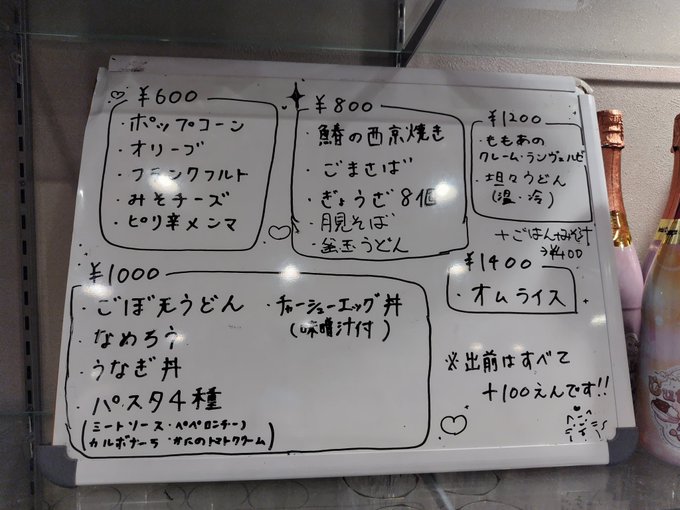 ¥600
・ポップコーン
・オリーブ
・フランクフルト
・みそチーズ
・ピリ辛メンマ
¥800
・鰆の西京焼き
・ごまさば
・ぎょうざ8個
・月見そば
・釜玉うどん
¥1200
・ももあの
クレーム・ランヴェルセ
・坦々うどん
(温・冷)
+ごはんみそ汁
→¥400
¥1400
・オムライス
¥1000
・ごぼ天うどん
・なめろう
・うなぎ丼
・パスタ4種
(ミートソース・ペペロンチーノ
カルボナーラ・かにのトマトクリーム)
・チャーシューエッグ丼
(味噌汁付)
※出前はすべて
+100えんです!!